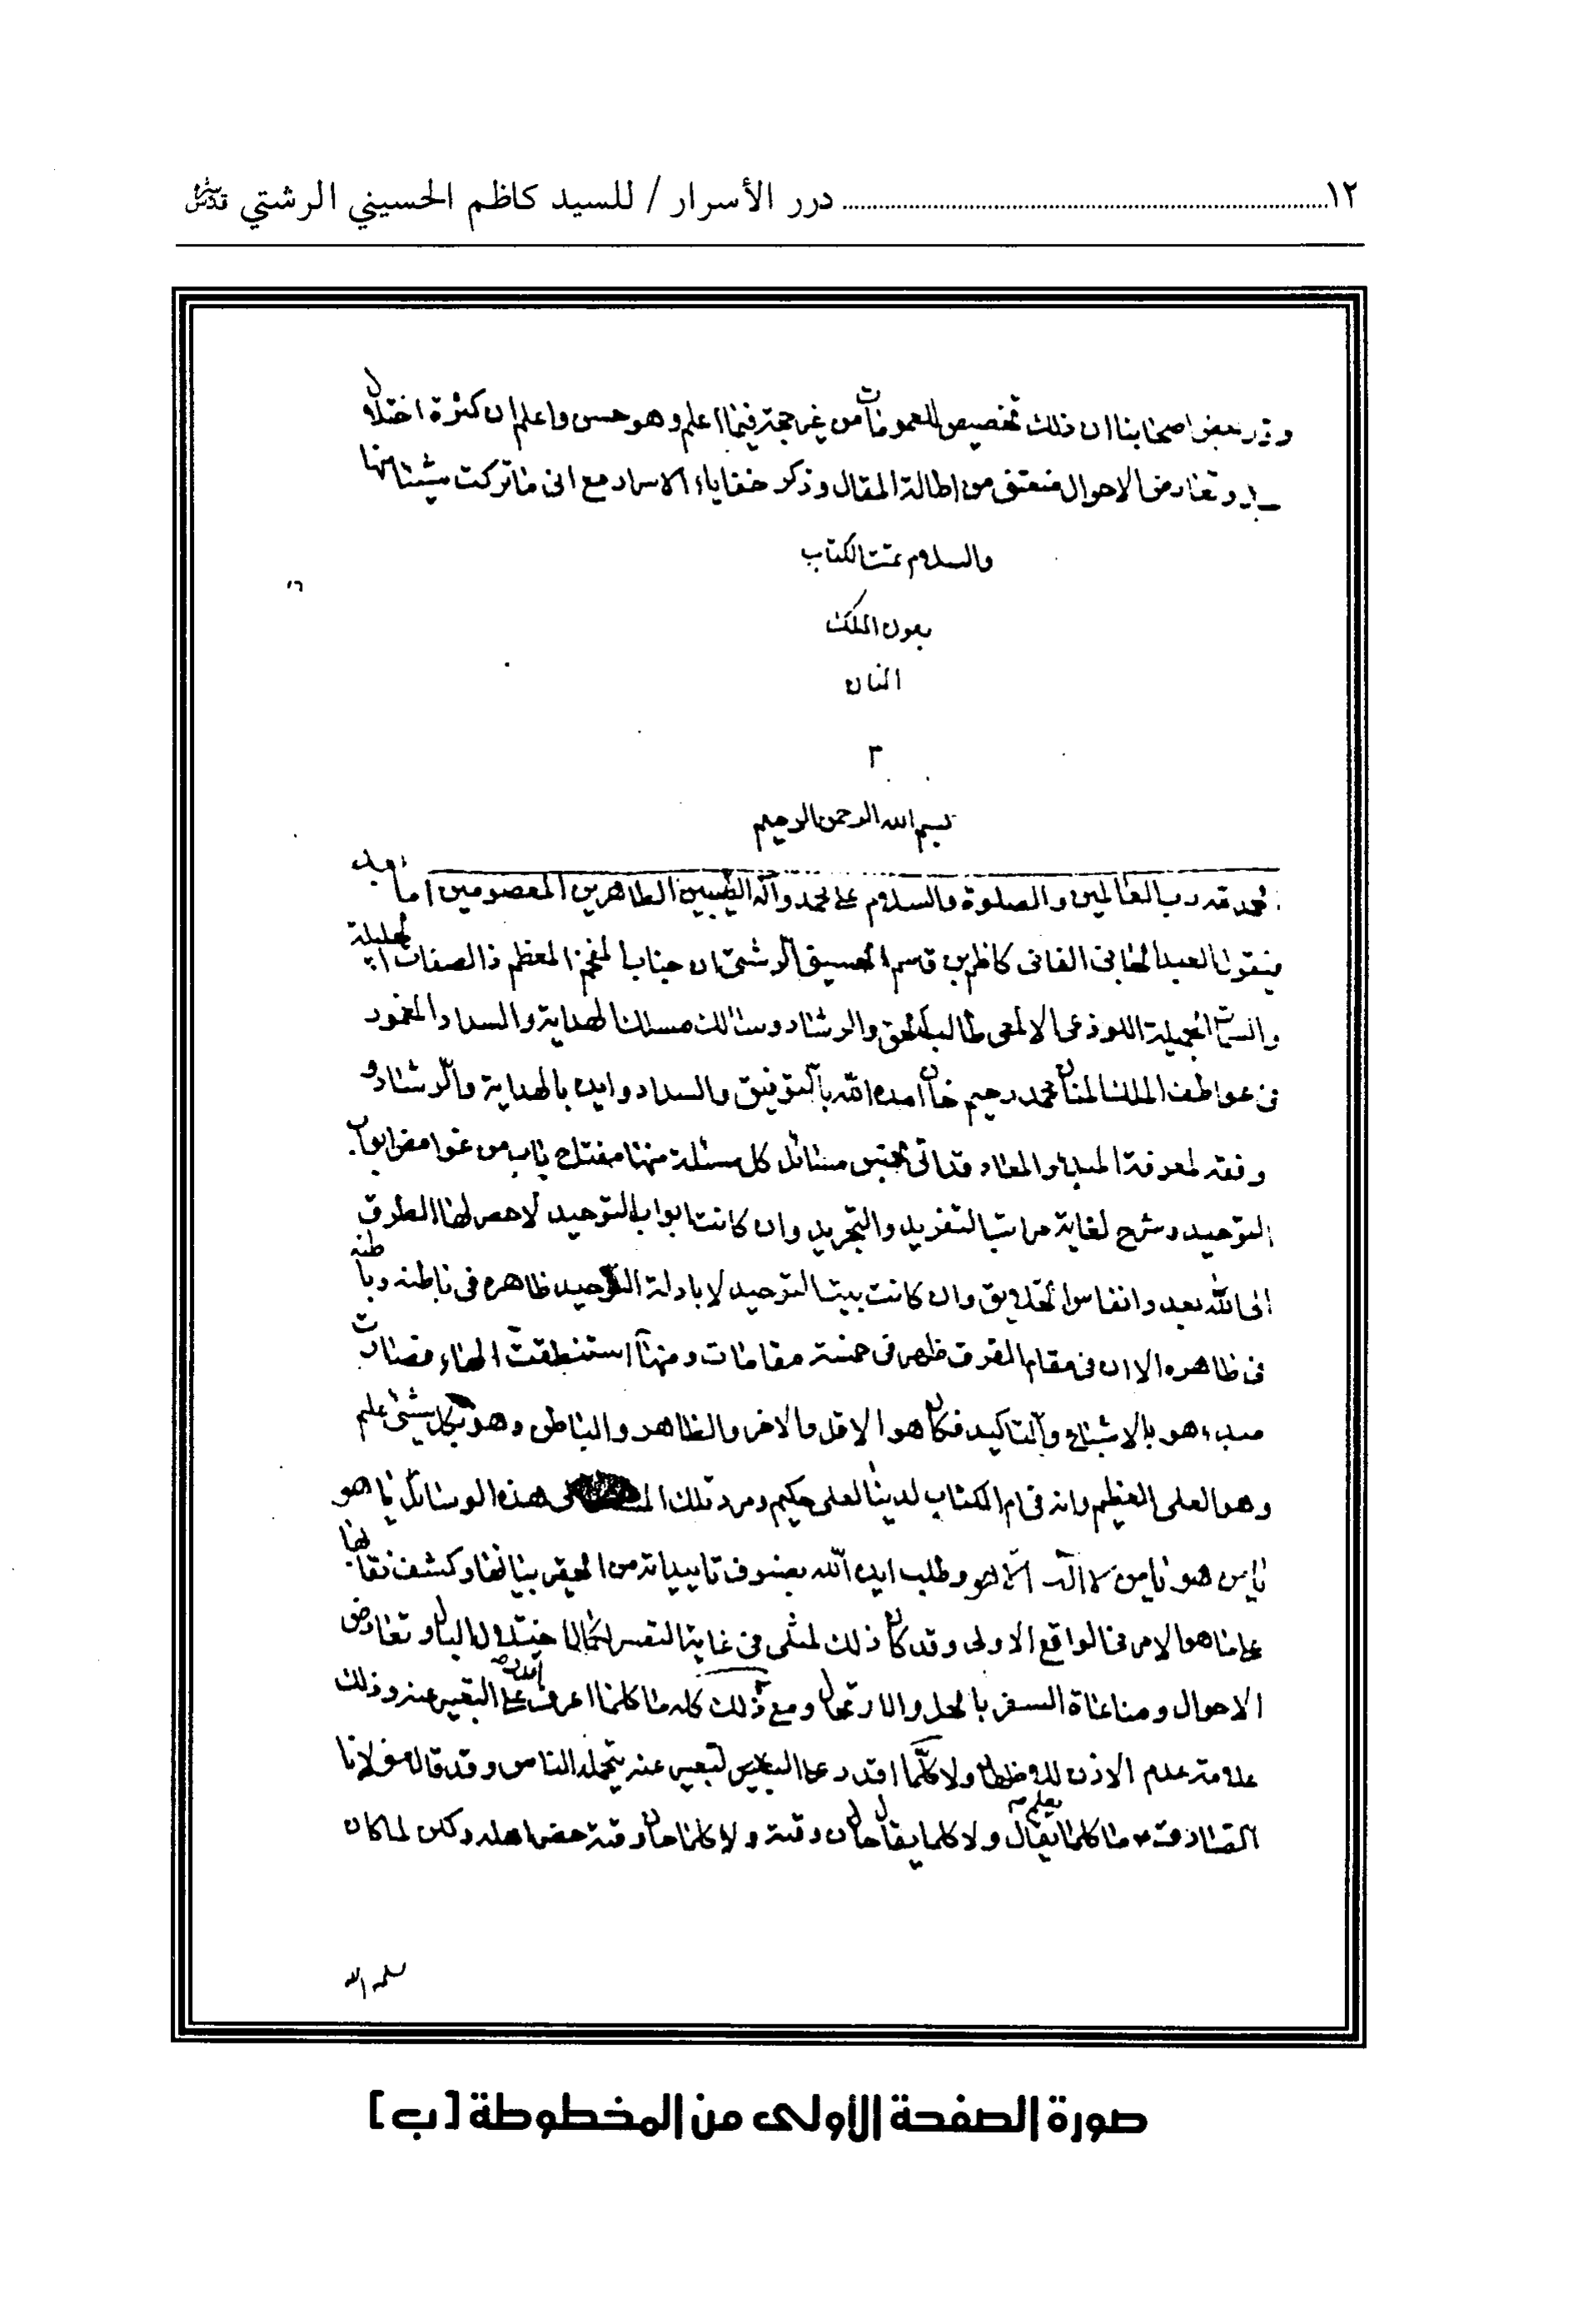 ١٢ ........ درر الأسرار / للسيد كاظم الحسيني الرشتي قدس سره
بعض اصحابنا ان ذلك تخصيص للعمومات من غير حجة فيما اعلم وهو حسن واعلم ان كثرة اختلال
وتعارض الاحوال من اطالة المقال وذكر خفايا الاسرار مع انى ما تركت شيئا منها
والسلام تمت الكتاب
بعون الملك
المنان
٣
بسم الله الرحمن الرحيم
الحمد لله رب العالمين والصلوة والسلام على محمد وآله الطيبين الطاهرين المعصومين اما بعد
فيقول العبد الجانى الفانى كاظم بن قاسم الحسينى الرشتى ان جناب المفخم المعظم ذا الصفات الجليلة
والسمات الجميلة اللوذعى الالمعى طالب الحق والرشاد وسالك مسلك الهداية والسداد المغمور
فى عواطف الملك المنان محمد رحيم خان امده الله بالتوفيق والسداد وايده بالهداية والرشاد و
وفقه لمعرفة المبدء والمعاد قد اتى بخمس مسائل كل مسئلة منها مفتاح باب من غوامض ابواب
التوحيد وشرح لغاية مراتب التفريد والتجريد وان كانت ابواب التوحيد لا حصر لها الطرق
الى الله بعدد انفاس الخلايق وان كانت بيت التوحيد لا بادلة التوحيد ظاهره فى باطنه وباطنه
فى ظاهره الا ان فى مقام الفرق ظهر فى خمسة مقامات ومنها استنطقت الهاء فصارت
مبدء هو بالاشباع والتاكيد فكان هو الاول والاخر والظاهر والباطن وهو بكل شيئ عليم
وهو العلى العظيم وانه فى ام الكتاب لدينا لعلى حكيم ومرد تلك هذه الوسائل يا هو
يا من هو يا من لا اله الا هو وطلب ايده الله بصنوف تاييداته من الحقير بيانها وكشف نقابها
على ما هو الامر فى الواقع الاولى وقد كان ذلك لمثلى فى غاية التعسر لكمال اختلال البال وتعارض
الاحوال ومناعاة السفر بالحل والارتحال ومع ذلك كله ما كلما اعرف اقدر على التعبير عنه وذلك
علامة عدم الاذن ولا كلما اقدر على التعبير عنه يتحمله الناس وقد قال مولانا
الصادق ما كلما يعلم يقال ولا كلما يقال حان وقته ولا كلما حان وقته حضر اهله ولكن لما كان
سلمه الله
صورة الصفحة الأولى من المخطوطة [ب]